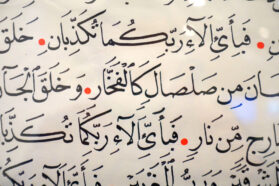 فَبِأَيِّ اٰلَآءِ رَبِّكُمَا تُكَذِّبَانِ • خَلَقَ
سَانَ مِن صَلْصَالٍ كَالْفَخَّارِ • وَخَلَقَ الْجَانَّ
ارِجٍ مِّن نَّارٍ • فَبِأَيِّ اٰلَآءِ رَبِّكُمَا تُكَذِّ